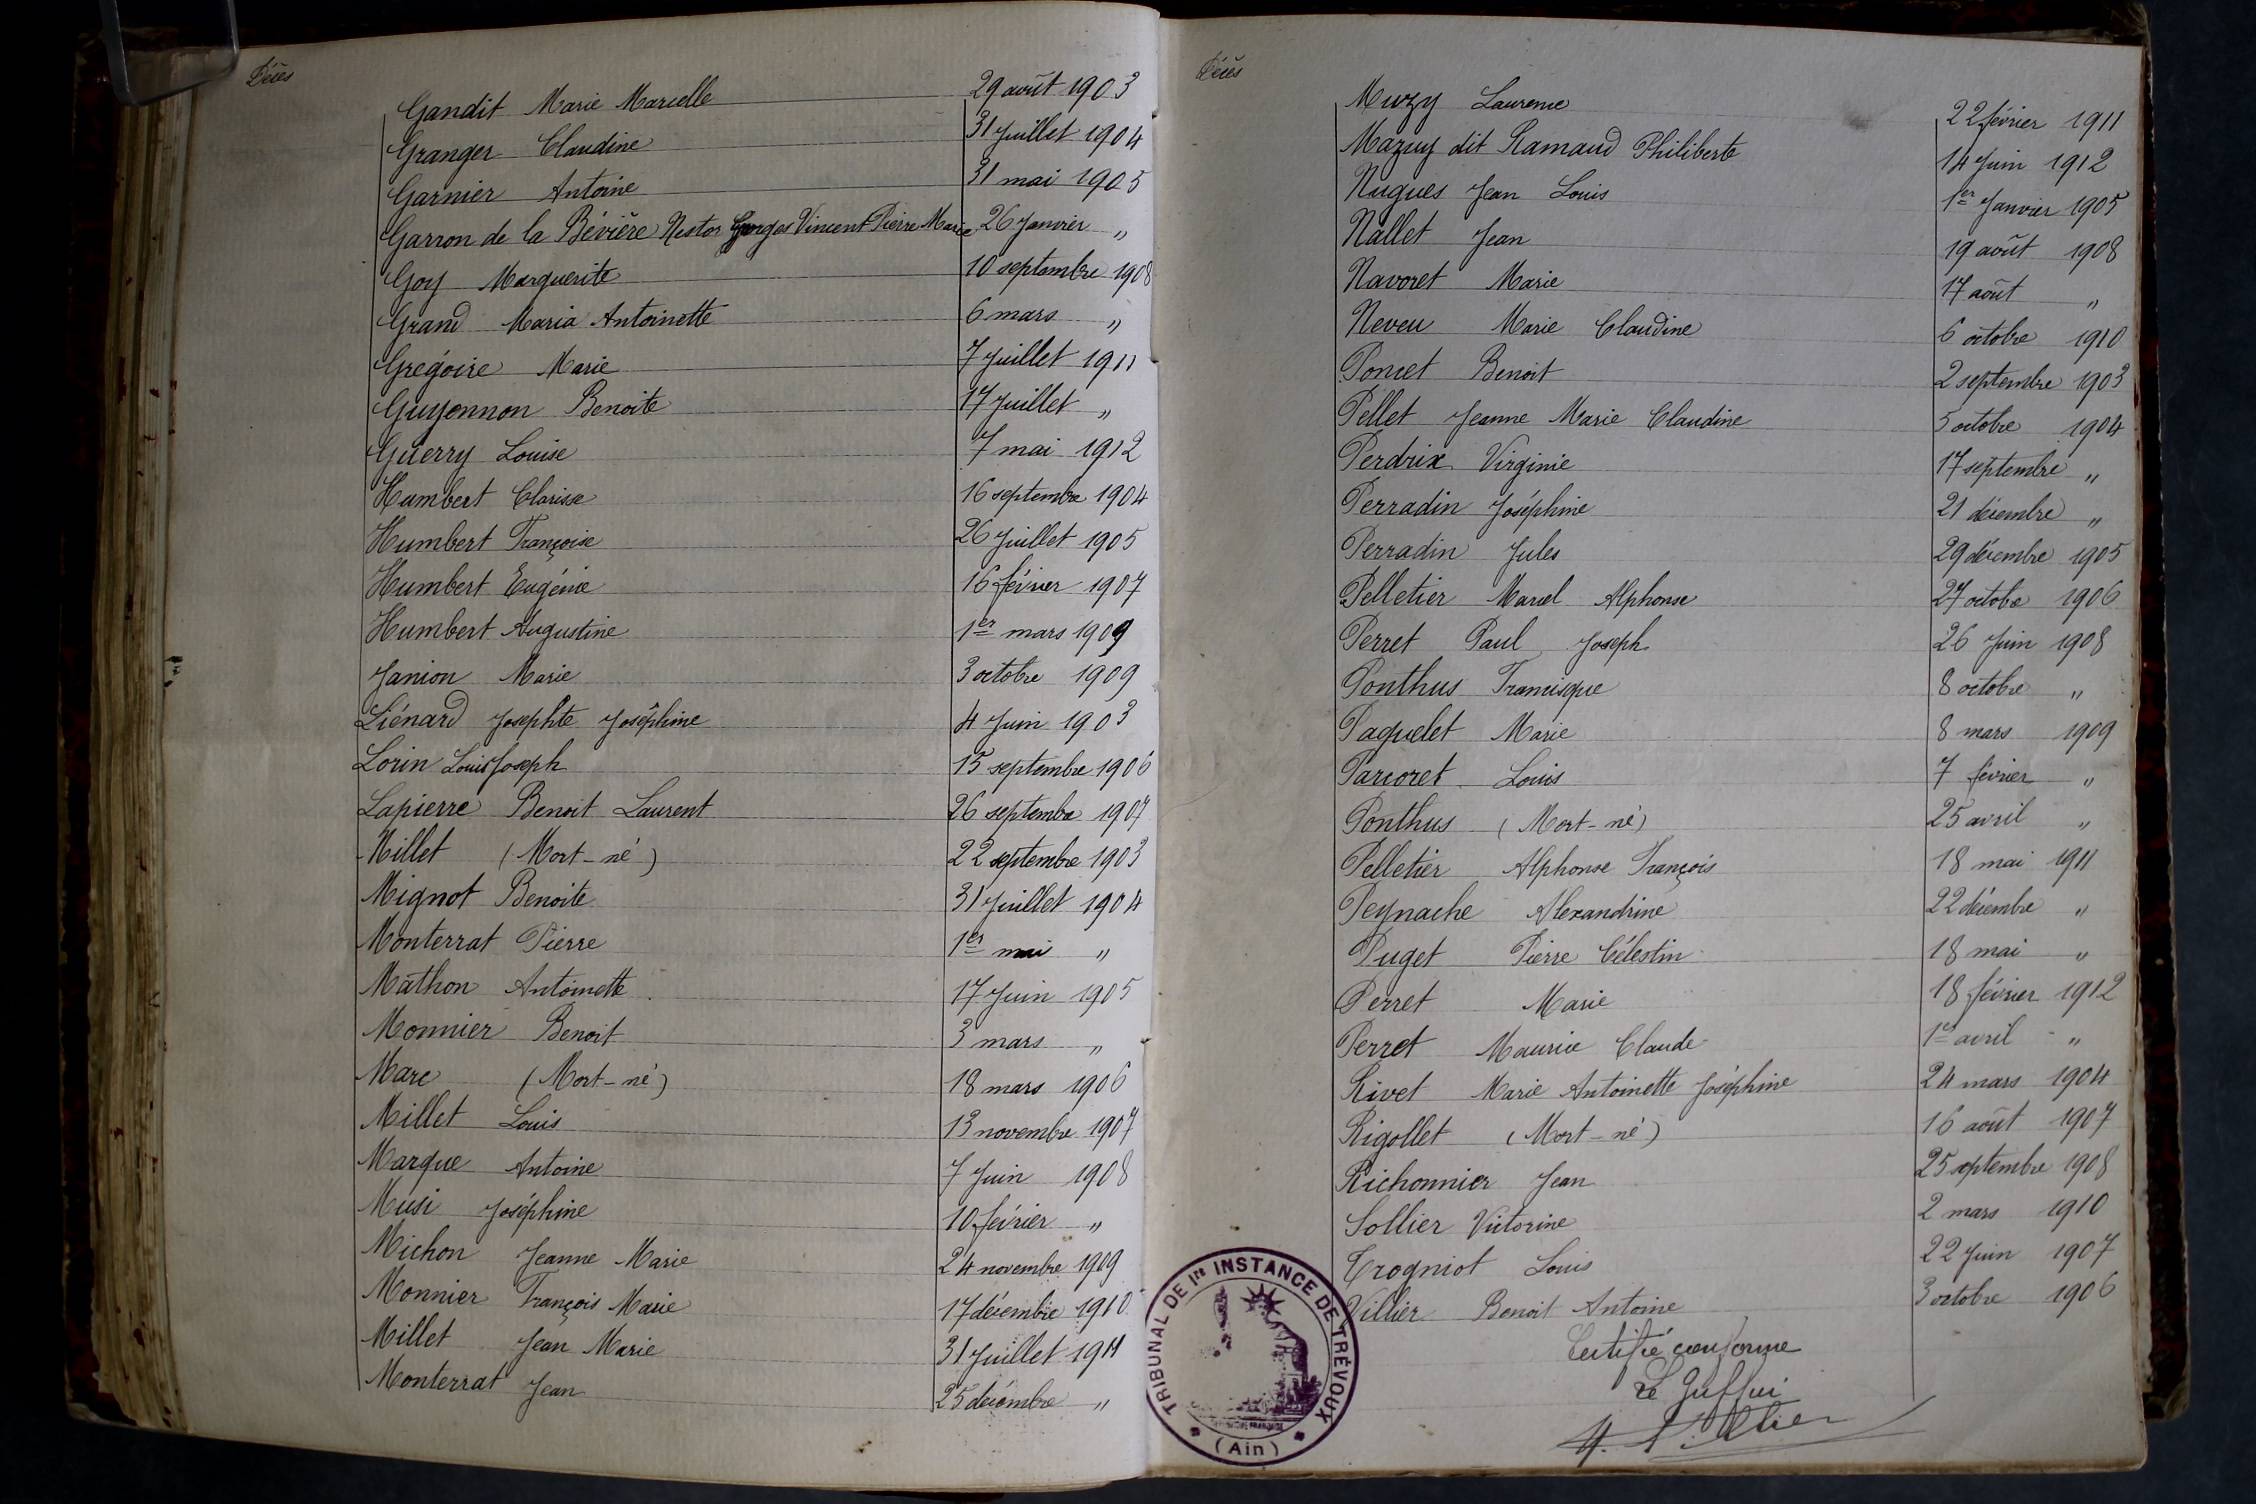 Décès
Gandit Marie Marcelle 29 août 1903
Granger Claudine 31 Juillet 1904
Garnier Antoine 31 mai 1905
Garron de la Bévière Nestor Georges Vincent Pierre Marie 26 Janvier "
Goy Marguerite 10 septembre 1908
Grand Maria Antoinette 6 mars "
Grégoire Marie 7 Juillet 1911
Guyennon Benoite 17 Juillet "
Guerry Louise 7 mai 1912
Humbert Clarisse 16 septembre 1904
Humbert Françoise 26 Juillet 1905
Humbert Eugénie 16 février 1907
Humbert Augustine 1er mars 1909
Janion Marie 3 octobre 1909
Liénard Josephte Joséphine 4 Juin 1903
Lorin Louis Joseph 15 septembre 1906
Lapierre Benoit Laurent 26 septembre 1907
Millet (Mort-né) 22 septembre 1903
Mignot Benoite 31 Juillet 1904
Monterrat Pierre 1er mai "
Mathon Antoinette 17 Juin 1905
Monnier Benoit 3 mars "
Marc (Mort-né) 18 mars 1906
Millet Louis 13 novembre 1907
Marque Antoine 7 Juin 1908
Musi Joséphine 10 février "
Michon Jeanne Marie 24 novembre 1909
Monnier François Marie 17 décembre 1910
Millet Jean Marie 31 Juillet 1911
Monterrat Jean 25 décembre "
Décès
Muzy Laurence 22 février 1911
Mazuy dit Ramaud Philiberte 14 Juin 1912
Nugues Jean Louis 1er Janvier 1905
Nallet Jean 19 août 1908
Navoret Marie 17 août "
Neveu Marie Claudine 6 octobre 1910
Poncet Benoit 2 septembre 1903
Pellet Jeanne Marie Claudine 5 octobre 1904
Perdrix Virginie 17 septembre "
Perradin Joséphine 21 décembre "
Perradin Jules 29 décembre 1905
Pelletier Marcel Alphonse 27 octobre 1906
Perret Paul Joseph 26 Juin 1908
Ponthus Francisque 8 octobre "
Paquelet Marie 8 mars 1909
Parcoret Louis 7 février "
Ponthus (Mort-né) 25 avril "
Pelletier Alphonse François 18 mai 1911
Peynache Alexandrine 22 décembre "
Puget Pierre Célestin 18 mai "
Perret Marie 18 février 1912
Perret Maurice Claude 1er avril "
Rivet Marie Antoinette Joséphine 24 mars 1904
Rigollet (Mort-né) 16 août 1907
Richonnier Jean 25 septembre 1908
Sollier Victorine 2 mars 1910
Trogniot Louis 22 Juin 1907
Villier Benoit Antoine 3 octobre 1906
Certifié conforme
Le Greffier
TRIBUNAL DE 1re INSTANCE DE TRÉVOUX
(Ain)